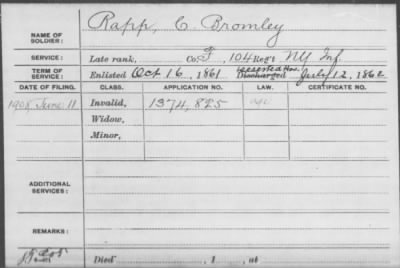 NAME OF SOLDIER: Rapp, C. Bromley
SERVICE: Late rank, Co. F, 104 Reg't NY Inf.
TERM OF SERVICE: Enlisted Oct 16, 1861 Discharged July 12, 1862
DATE OF FILING. CLASS. APPLICATION NO. LAW. CERTIFICATE NO.
1908 June 11 Invalid, 1374,825
Widow,
Minor,
ADDITIONAL SERVICES:
REMARKS:
Died , 1 , at